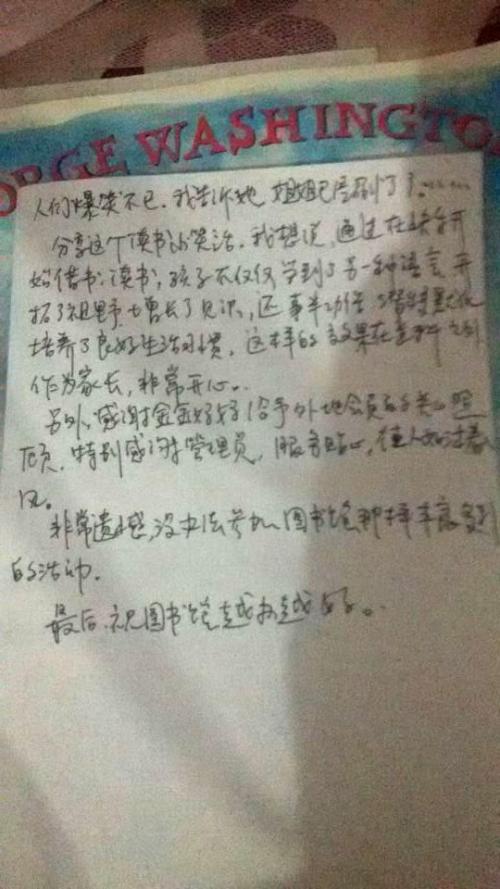 ORGE WASHINGTO
人们爆笑不已.我告诉她姐姐已尽到了!……
分享这个读书的笑话.我想说,通过在
始借书、读书,孩子不仅仅学到了另一种语言,开
拓了视野,增长了见识,还事半功倍 潜移默化
培养了良好生活习惯,这样的效果在意料之外
作为家长,非常开心..
另外,感谢 给予外地会员的关心照
顾,特别感谢管理员,服务贴心,使人如沐春
风。
非常遗憾,没办法参加图书馆那样丰富多彩
的活动.
最后,祝图书馆越办越好。.